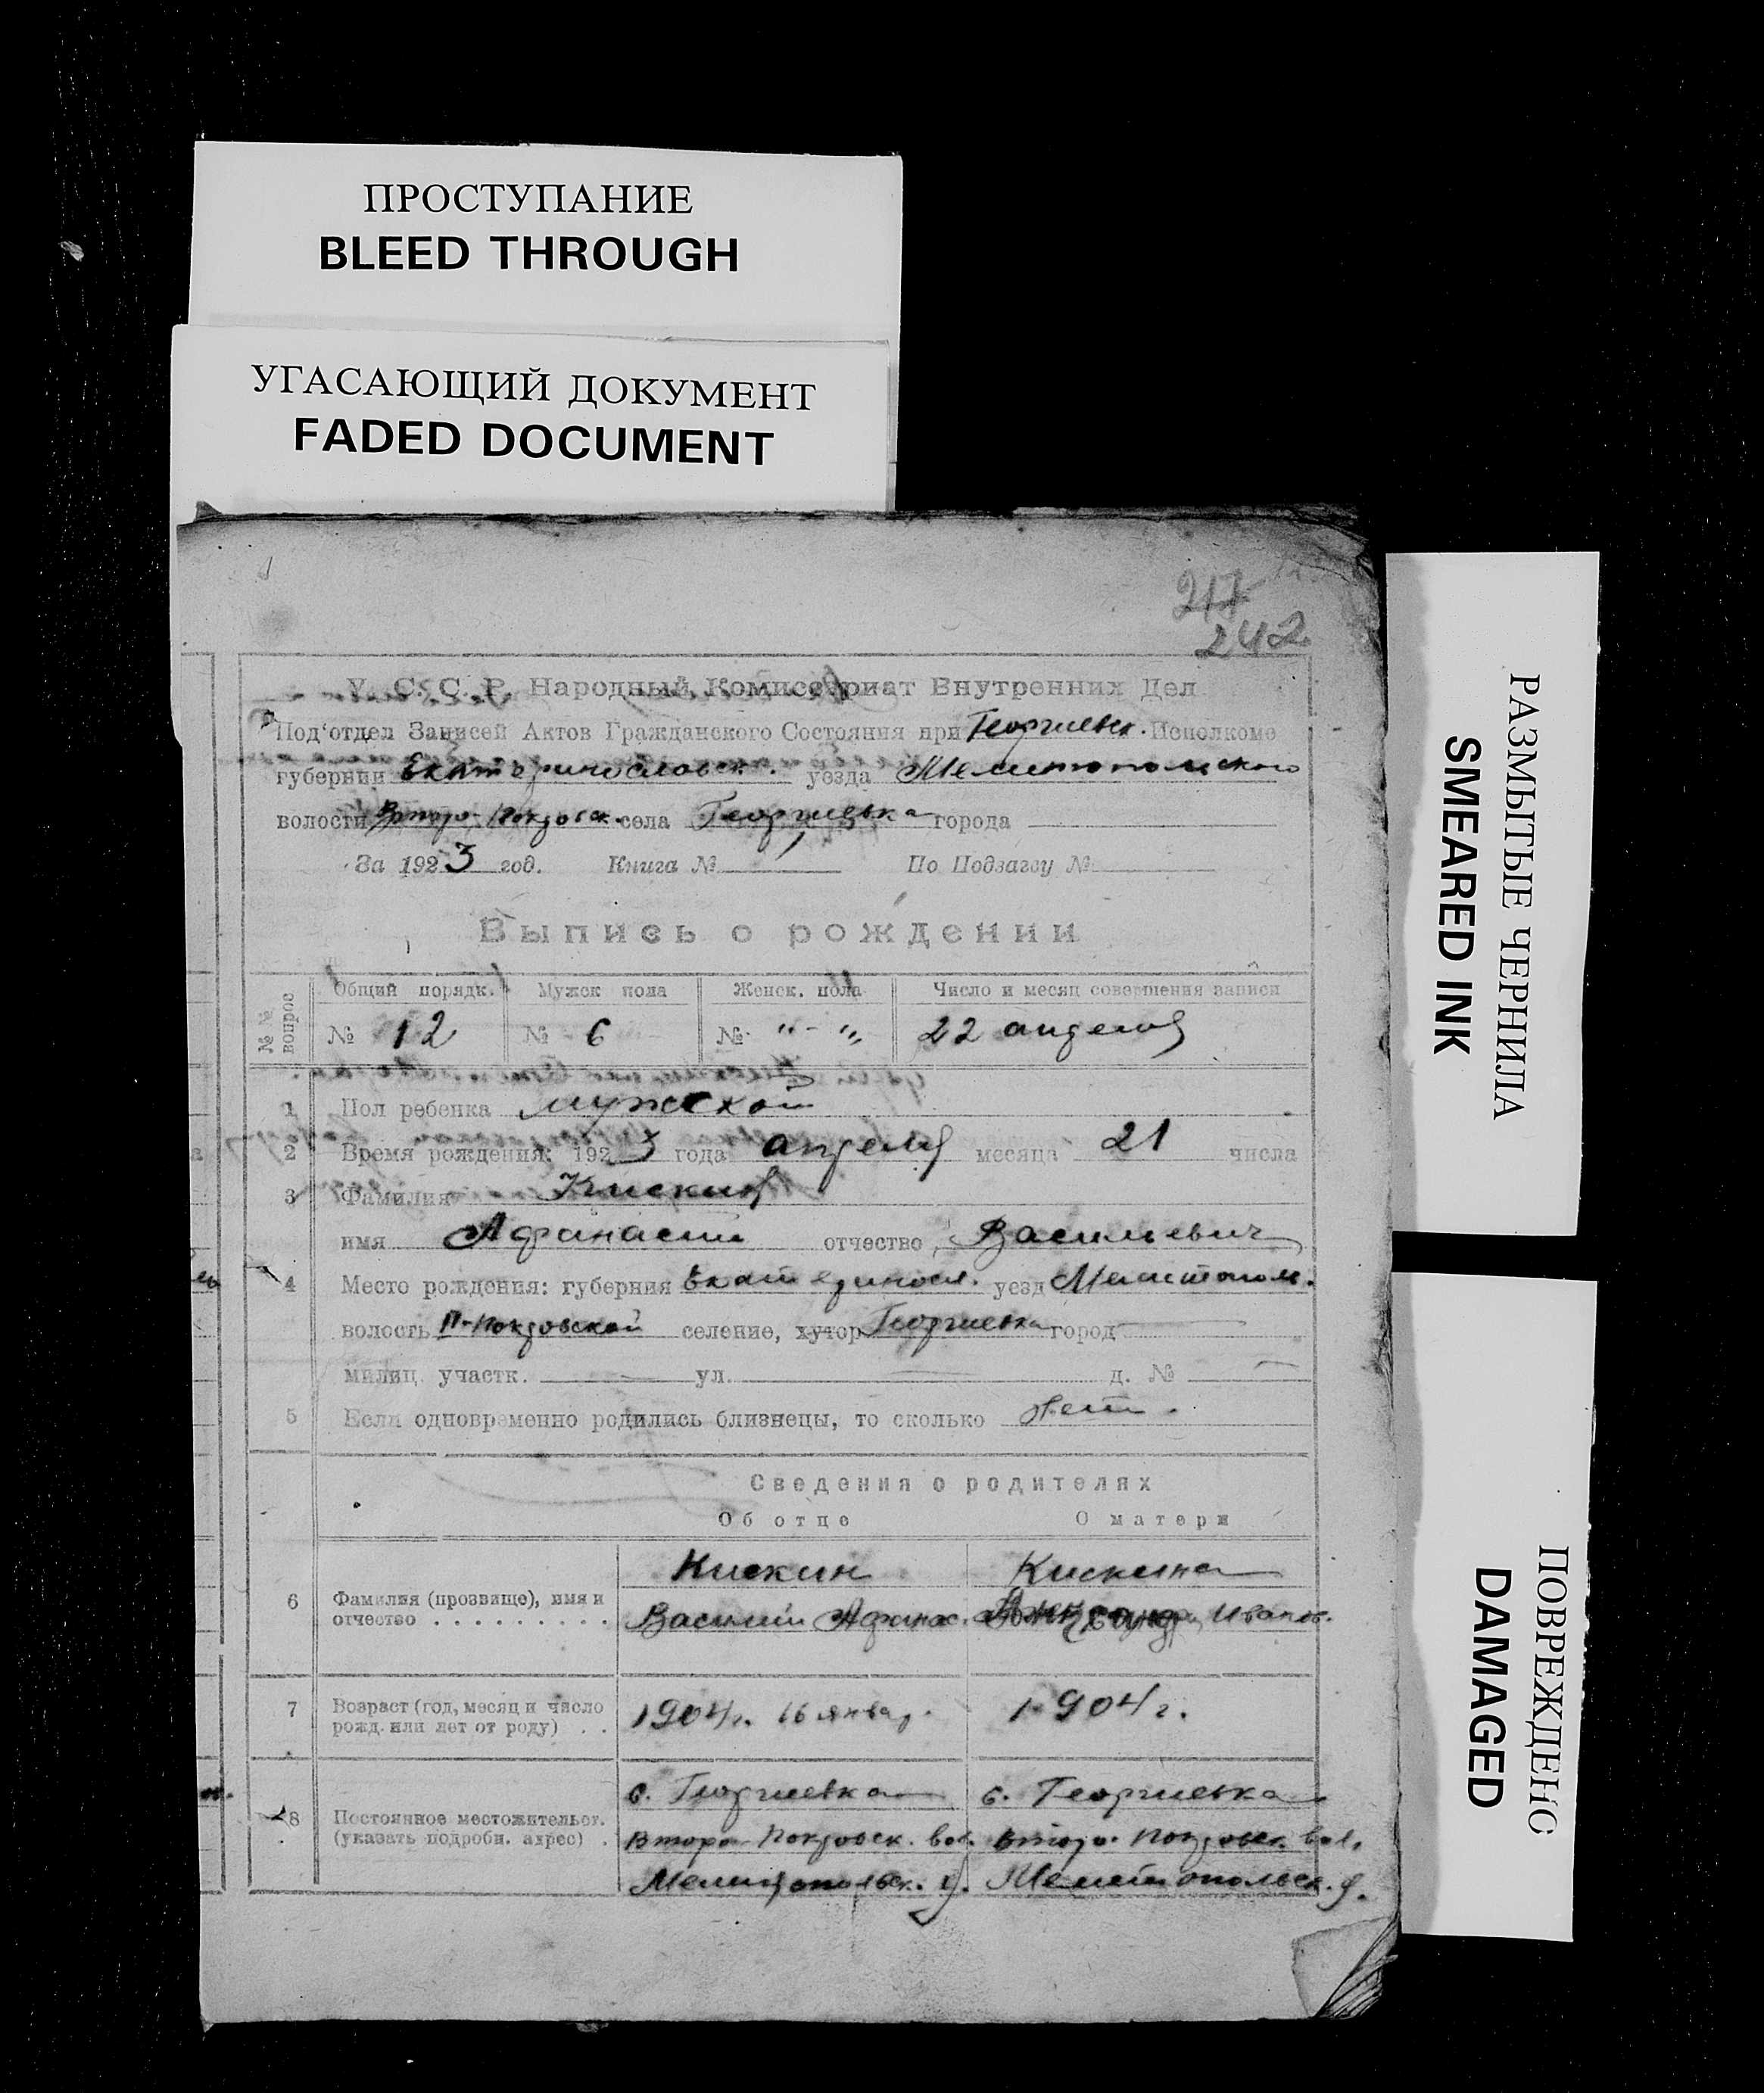 ПРОСТУПАНИЕ
BLEED THROUGH
УГАСАЮЩИЙ ДОКУМЕНТ
FADED DOCUMENT
РАЗМЫТЫЕ ЧЕРНИЛА
SMEARED INK
ПОВРЕЖДЕНО
DAMAGED
217
242
У. С. С. Р. Народный Комиссариат Внутренних Дел
Под'отдел Записей Актов Гражданского Состояния при Георгиевск. Исполкоме
губернии Екатеринославск. уезда Мелитопольского
волости Второ-Покровск. села Георгиевка города
За 1923 год. Книга № По Подзагсу №
Выпись о рождении
№ № вопрос
Общий порядк. Мужск пола Женск. пола Число и месяц совершения записи
№ 12 № 6 № "-" 22 апреля
1 Пол ребенка мужской
2 Время рождения: 1923 года апреля месяца 21 числа
3 Фамилия Кискин
имя Афанасий отчество Васильевич
4 Место рождения: губерния Екатериносл. уезд Мелитопол.
волость II-Покровской селение, хутор Георгиевка город
милиц. участк. ул. д. №
5 Если одновременно родились близнецы, то сколько нет.
Сведения о родителях
Об отце О матери
Кискин Кискина
6 Фамилия (прозвище), имя и
отчество . . . . . . . . .
Василий Афанас. Иванов.
7 Возраст (год, месяц и число
рожд. или лет от роду) . .
1904 г. 16 январ. 1904 г.
с. Георгиевка с. Георгиевка
8 Постоянное местожительст.
(указать подробн. адрес) .
Второ-Покровск. вол. Второ-Покровск. вол.
Мелитопольск. у. Мелитопольск. у.